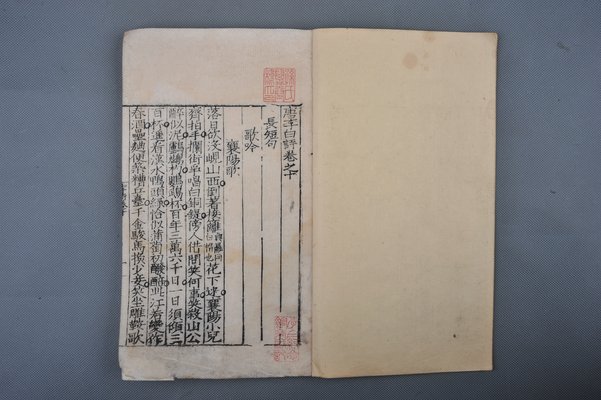 唐李白詩卷之十
長短句
歌吟
襄陽歌
落日欲沒峴山西倒著接䍦花下迷襄陽小兒
齊拍手攔街爭唱白銅鍉傍人借問笑何事笑殺山公
醉似泥鸕鶿杓鸚鵡杯百年三萬六千日一日須傾三
百杯遙看漢水鴨頭綠恰似葡萄初醱醅此江若變作
春酒壘麴便築糟丘臺千金駿馬換少妾笑坐雕鞍歌